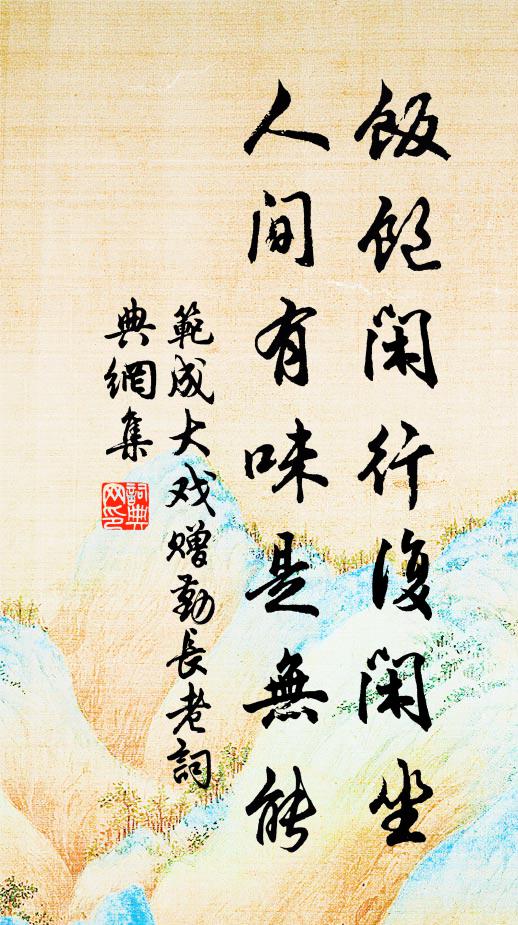 飯飽閑行復閑坐
人間有味是無能
範成大戏贈勤長老詞
典網集
詞典
网印